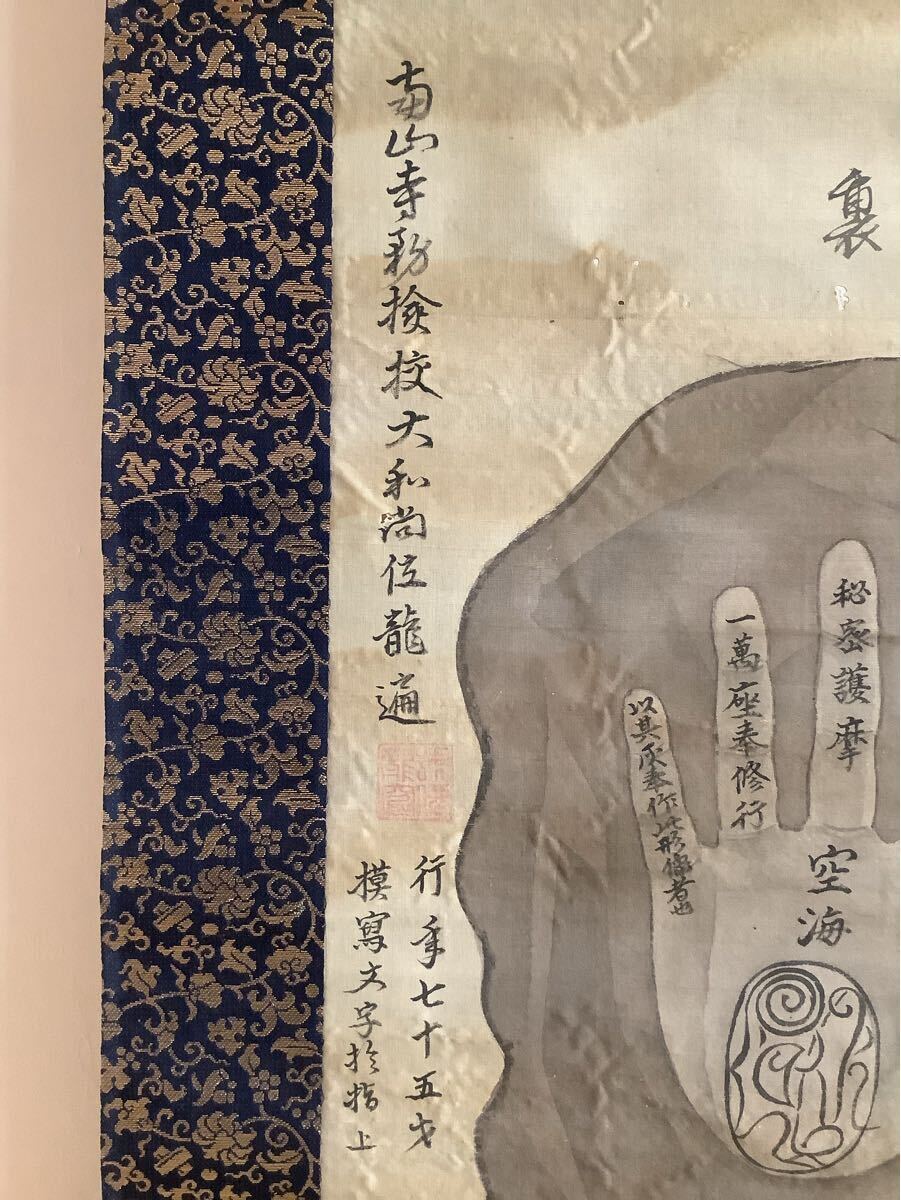 裏
秘密護摩
一萬座奉修行
以其灰奉作此形像者也
空海
南山寺務検校大和尚位龍遍
行年七十五才
模寫文字於指上